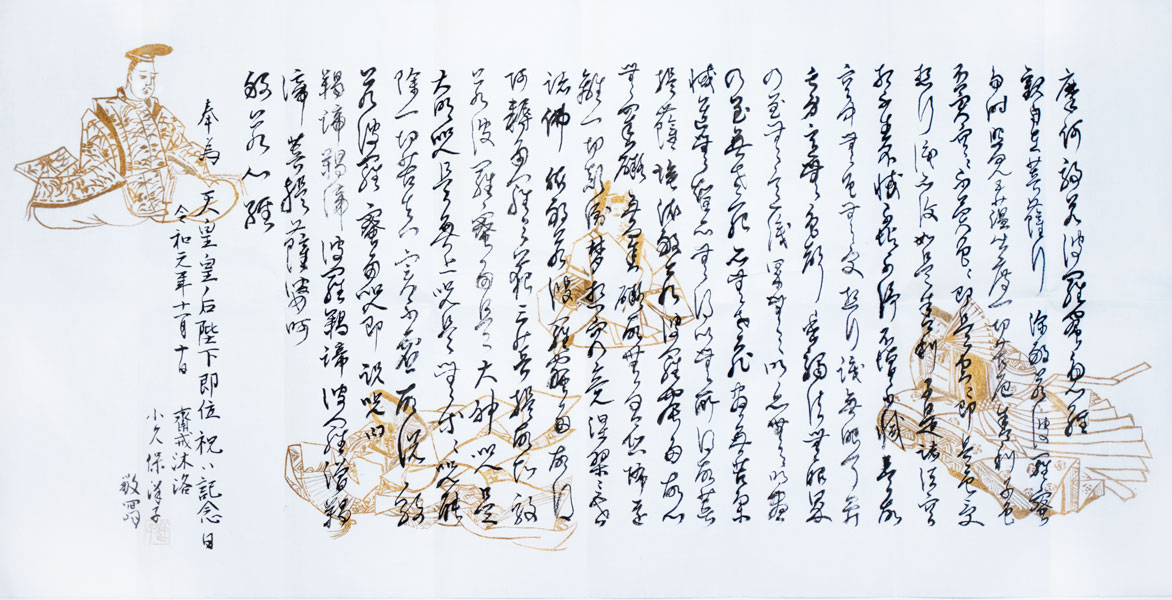 摩訶般若波羅蜜多心経
観自在菩薩行深般若波羅蜜
多時照見五蘊皆空度一切苦厄舎利子色
不異空々不異色々即是空々即是色受
想行識亦復如是舎利子是諸法空
相不生不滅不垢不浄不増不減是故
空中無色無受想行識無眼耳鼻
舌身意無色声香味触法無眼界
乃至無意識界無無明亦無無明尽
乃至無老死亦無老死尽無苦集
滅道無智亦無得以無所得故菩
提薩埵依般若波羅蜜多故心
無罣礙無罣礙故無有恐怖遠
離一切顛倒夢想究竟涅槃三世
諸佛依般若波羅蜜多故得
阿耨多羅三藐三菩提故知般
若波羅蜜多是大神呪是
大明呪是無上呪是無等々呪能
除一切苦真実不虚故説般
若波羅蜜多呪即説呪曰
羯諦羯諦波羅羯諦波羅僧羯
諦菩提薩婆訶
般若心経
奉為天皇皇后陛下即位祝い記念日
令和元年十一月十日
齋戒沐浴
小久保洋子
敬寫